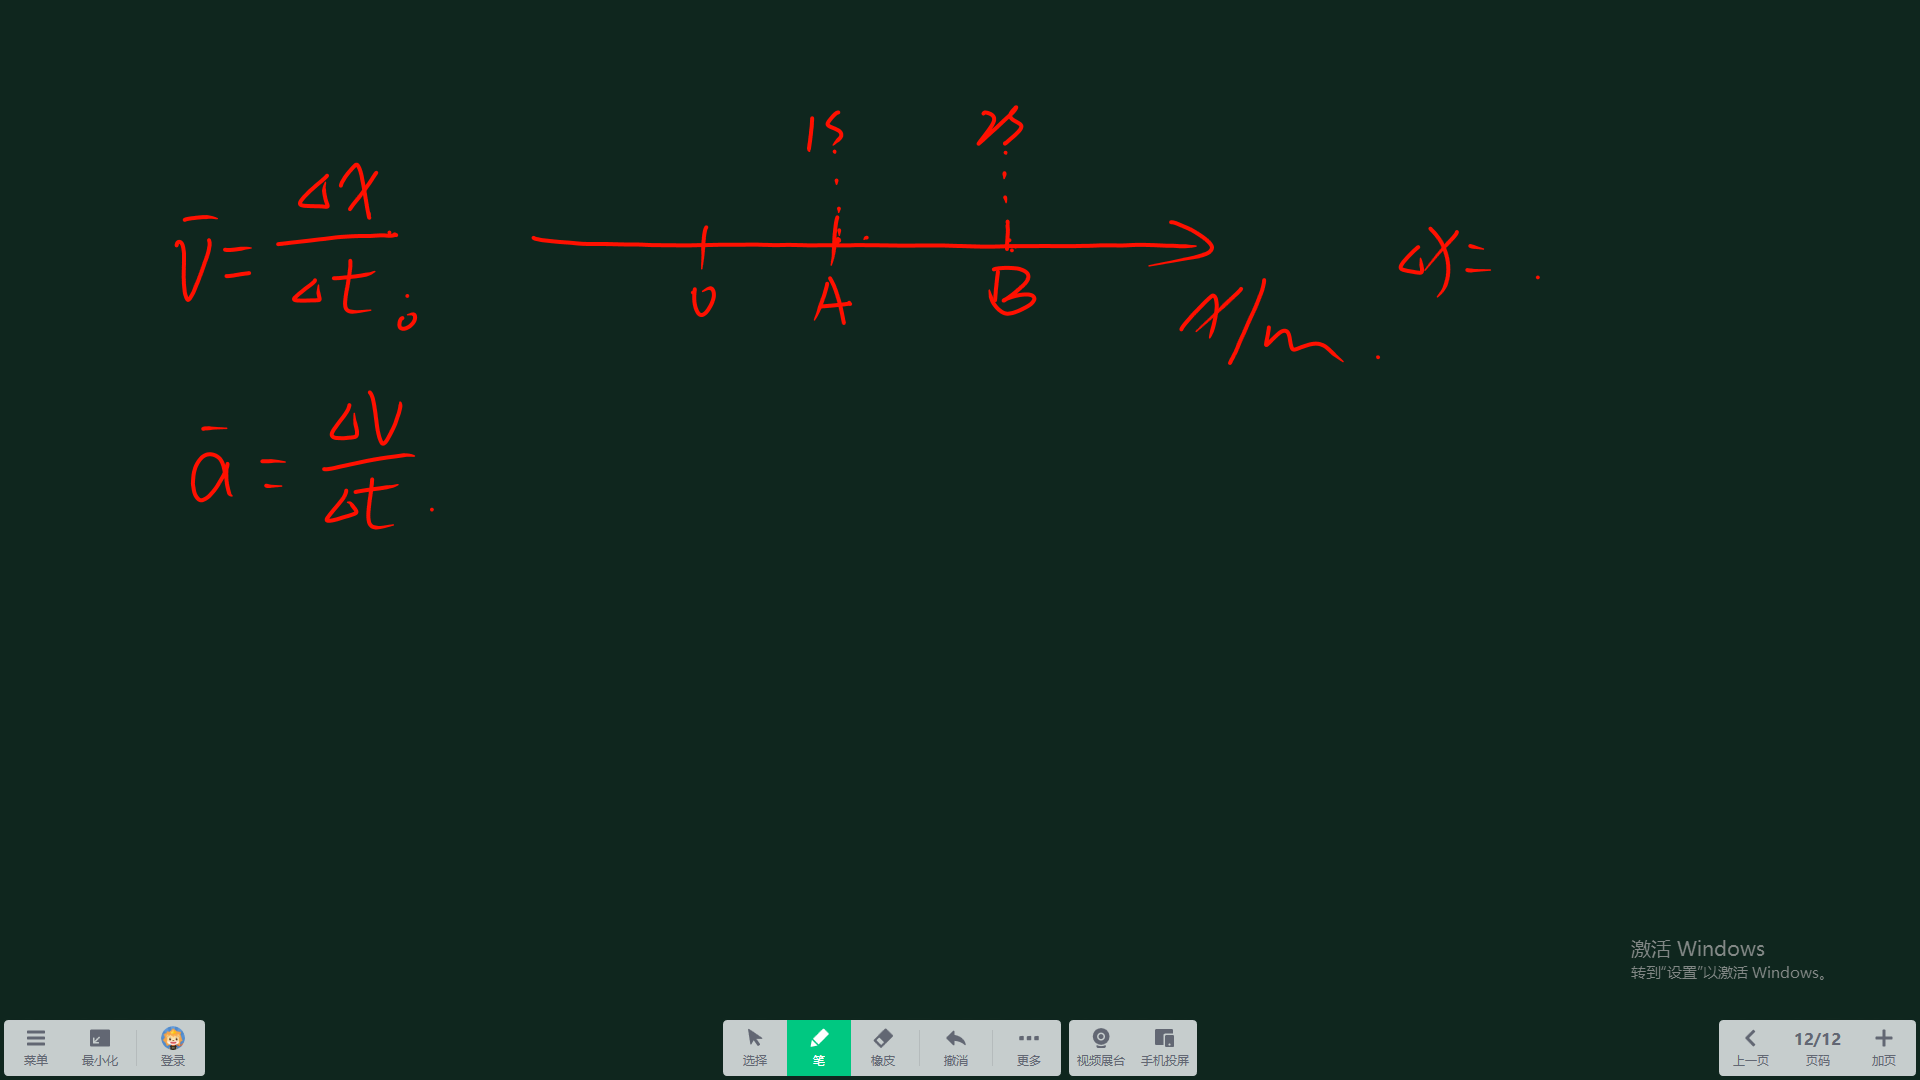 1s 2s
v̄ = Δx/Δt。
0 A B
x/m.
Δx = .
ā = Δv/Δt.
激活 Windows
转到“设置”以激活 Windows。
菜单 最小化 登录 选择 笔 橡皮 撤消 更多 视频展台 手机投屏 上一页 12/12 页码 加页